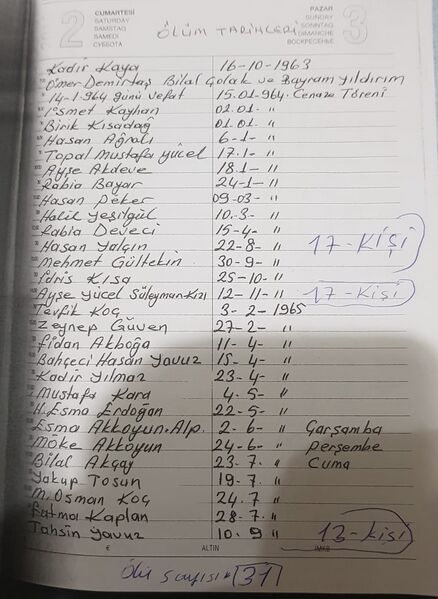 2 CUMARTESİ PAZAR 3
SATURDAY SUNDAY
SAMSTAG SONNTAG
SAMEDI DIMANCHE
СУББОТА ВОСКРЕСЕНЬЕ
ÖLÜM TARİHLERİ
Kadir Kaya 16-10-1963
Ömer Demirtaş Bilal Çolak ve Bayram yıldırım
14-1.964 günü vefat 15.01-964. Cenaze Töreni
İsmet Kayhan 02.01. "
Birik Kısadağ 01.01. "
Hasan Ağralı 6-1- "
Topal Mustafa yücel 17.1- "
Ayşe Akdeve 18.1- "
Rabia Bayar 24-1- "
Hasan Peker 09-03- "
Halil Yeşilgül 10.3- "
Rabia Deveci 15-4- "
Hasan Yalçın 22-8- " 17-KİŞİ
Mehmet Gültekin 30-9- "
İdris Kısa 25-10- "
Ayşe Yücel Süleyman-Kızı 12-11- " 17-Kişi
Tevfik Koç 3-2-1965
Zeynep Güven 27-2- "
Fidan Akboğa 11-4- "
Bahçeci Hasan Yavuz 15-4- "
Kadir Yılmaz 23-4- "
Mustafa Kara 4-5- "
H. Esma Erdoğan 22-5- "
Esma Akkoyun.Alp. 2-6- " Çarşamba
Möke Akkoyun 24-6- " perşembe
Bilal Akçay 23-7. " Cuma
Yakup Tosun 19-7. "
M. Osman Koç 24.7 "
Fatma Kaplan 28-7. "
Tahsin Yavuz 10.9 " 13-kişi
€ ALTIN İMKB
Ölü sayısı 31